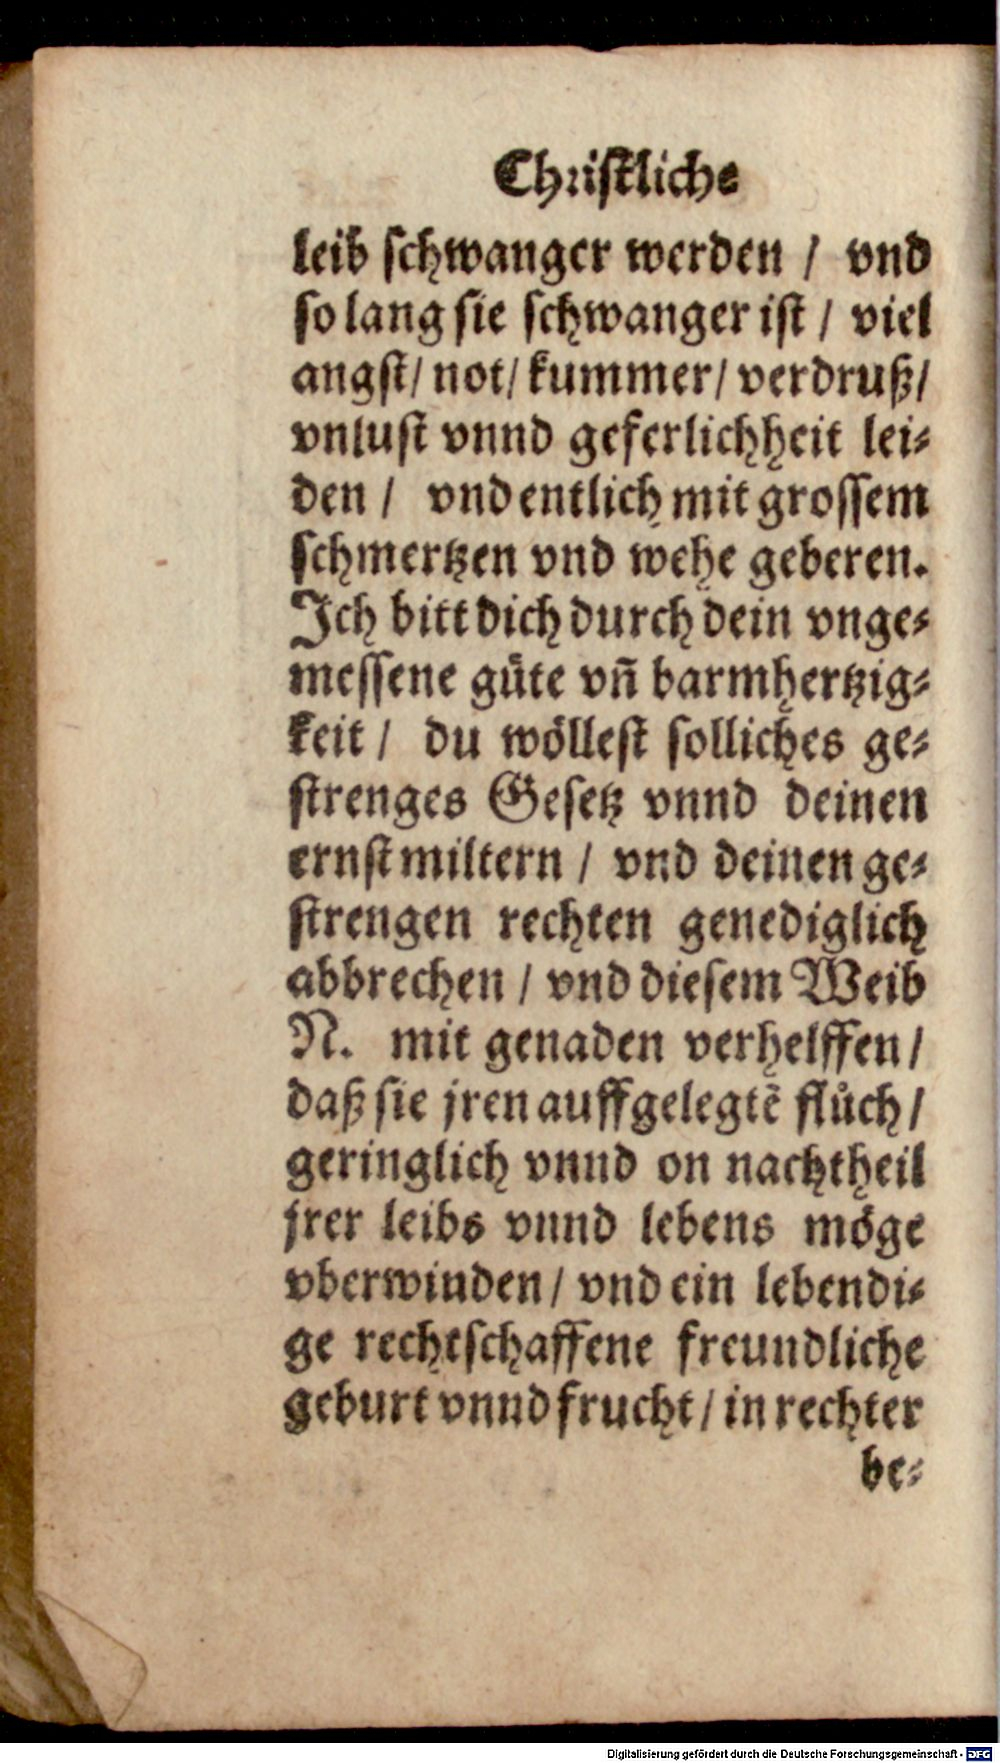 Christliche
leib schwanger werden / vnd
so lang sie schwanger ist / viel
angst / not / kummer / verdruß /
vnlust vnnd geferlichheit lei⸗
den / vnd entlich mit grossem
schmertzen vnd wehe geberen.
Ich bitt dich durch dein vnge⸗
messene guͤte vn̄ barmhertzig⸗
keit / du woͤllest solliches ge⸗
strenges Gesetz vnnd deinen
ernst miltern / vnd deinen ge⸗
strengen rechten genediglich
abbrechen / vnd diesem Weib
N. mit genaden verhelffen /
daß sie jren auffgelegtē fluͦch /
geringlich vnnd on nachtheil
jrer leibs vnnd lebens moͤge
vberwinden / vnd ein lebendi⸗
ge rechtschaffene freundliche
geburt vnnd frucht / in rechter
be⸗
Digitalisierung gefördert durch die Deutsche Forschungsgemeinschaft - DFG